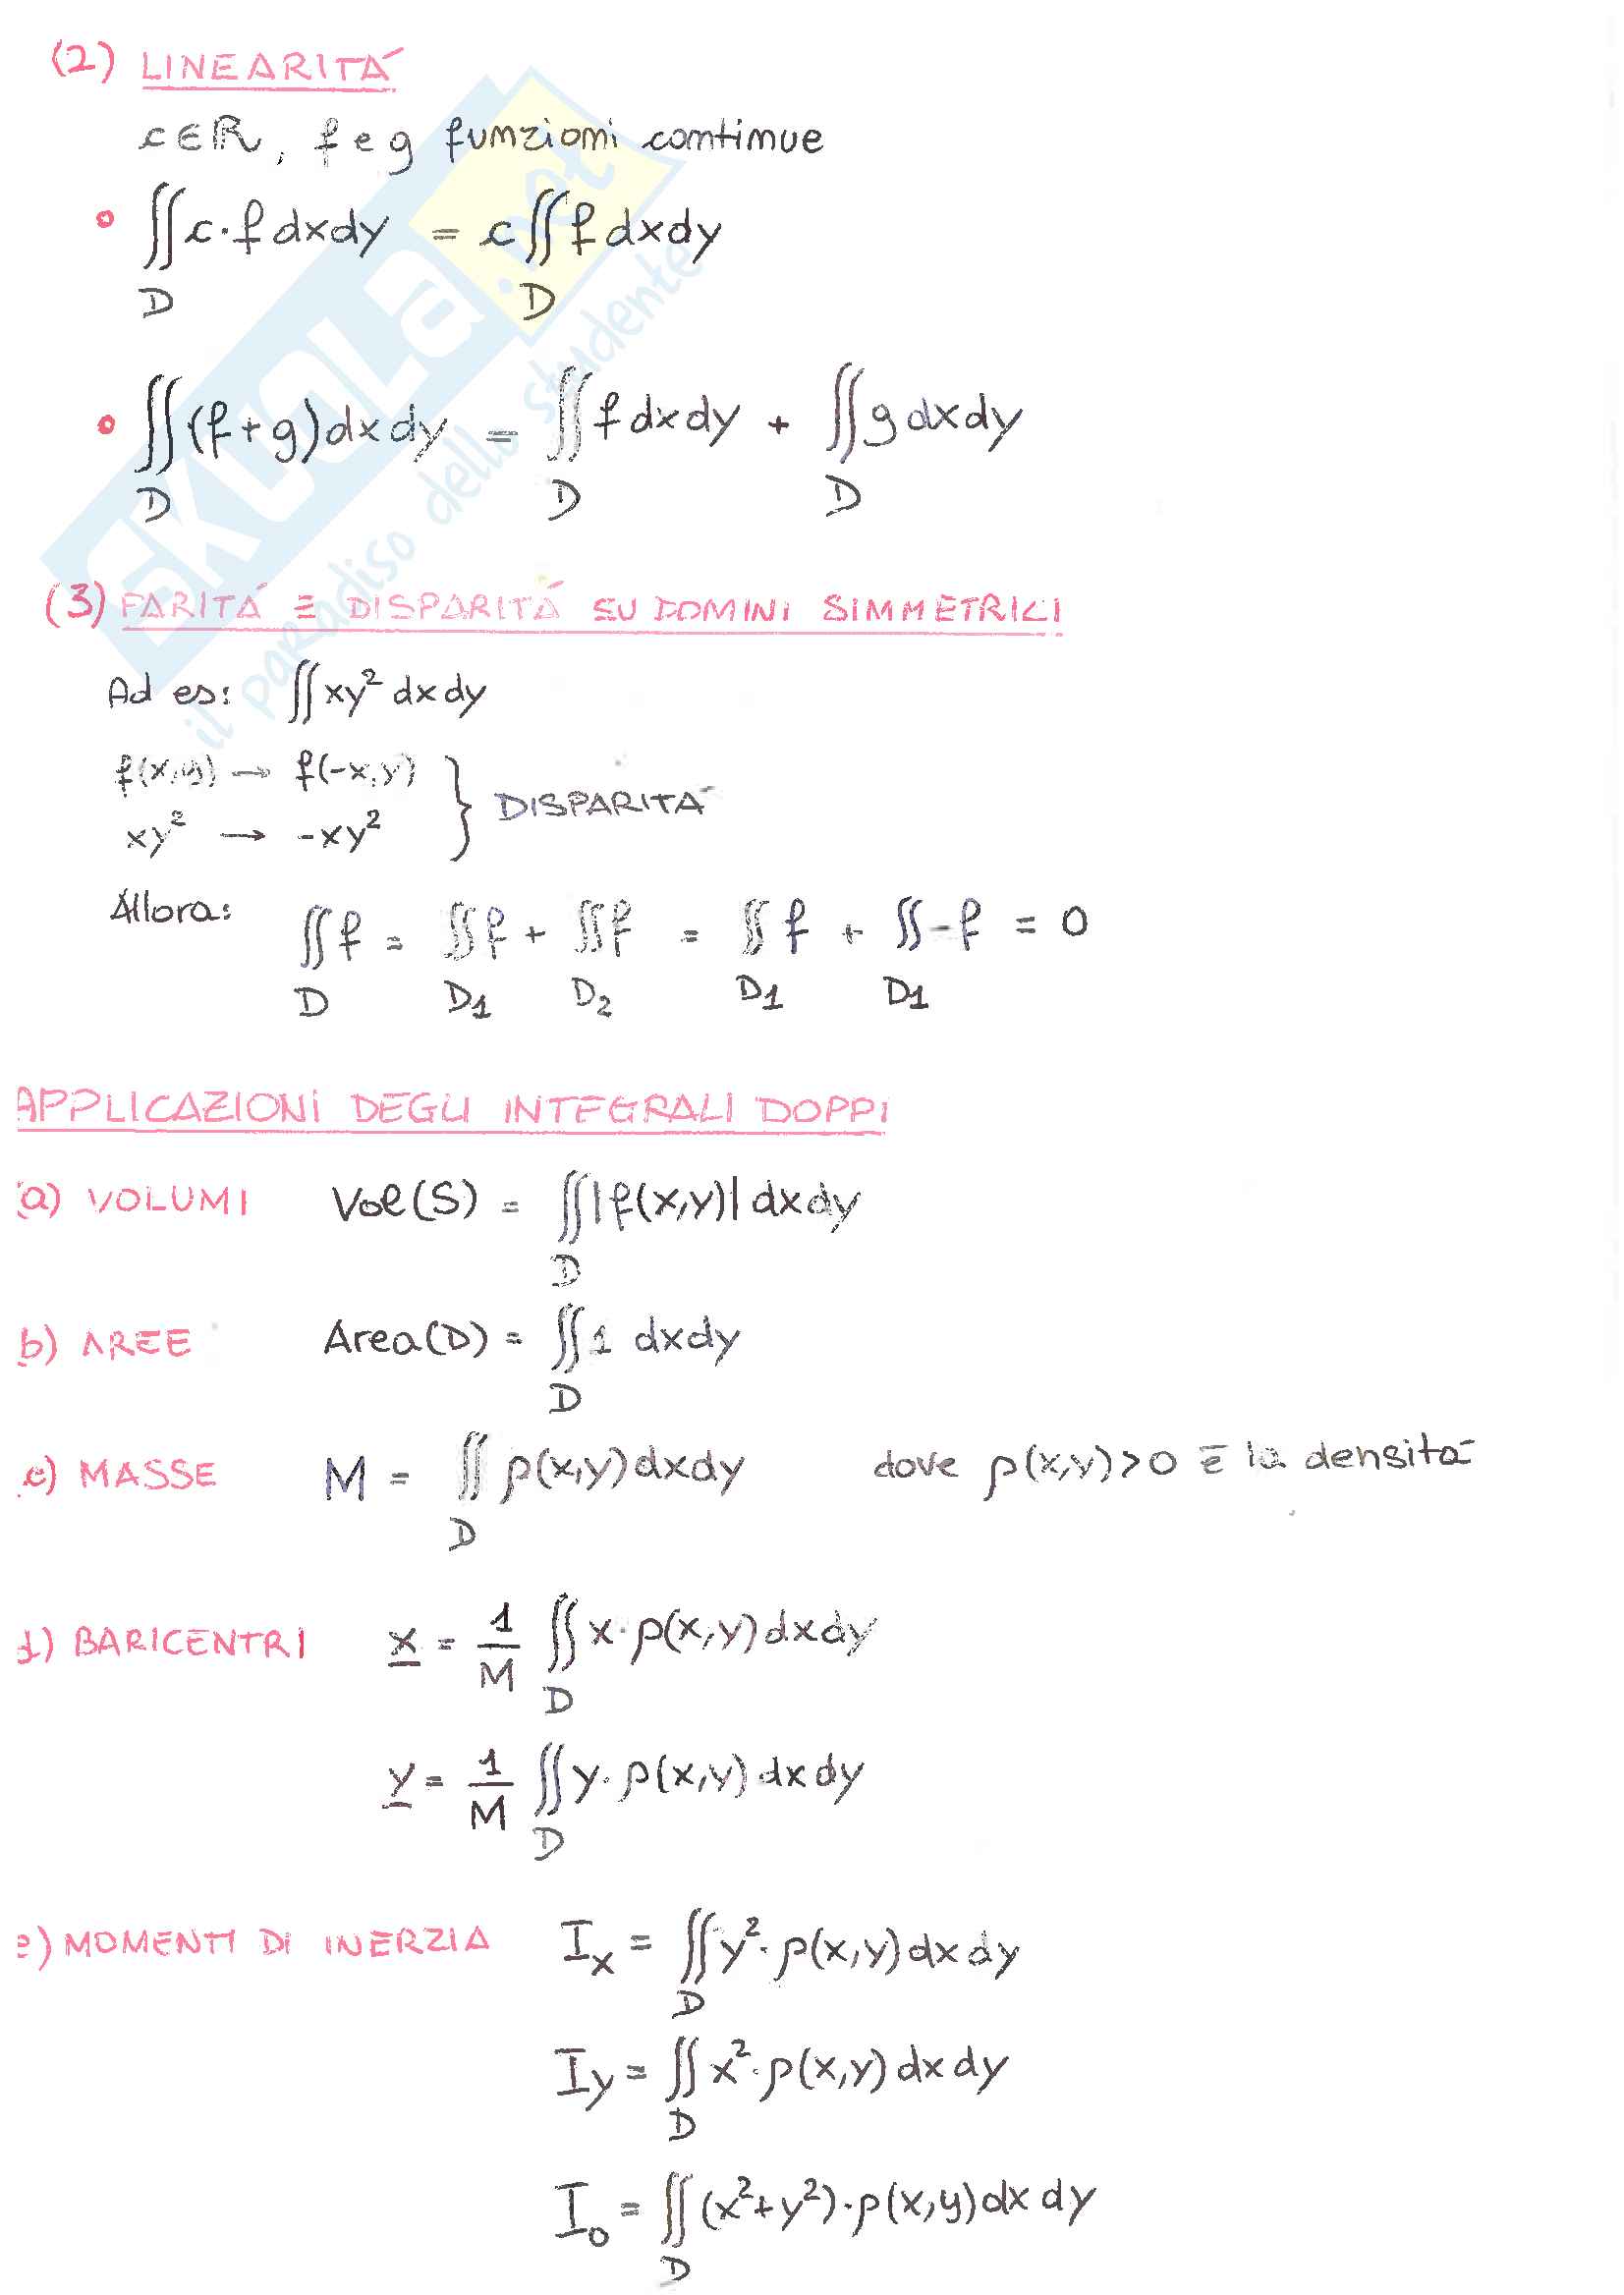 (2) LINEARITÀ
c∈ℝ, f e g funzioni continue
∬_D c·f dxdy = c ∬_D f dxdy
∬_D (f+g) dxdy = ∬_D f dxdy + ∬_D g dxdy
(3) PARITÀ E DISPARITÀ SU DOMINI SIMMETRICI
Ad es: ∬ xy² dxdy
f(x,y) → f(-x,y)
xy² → -xy² } DISPARITÀ
Allora: ∬_D f = ∬_D1 f + ∬_D2 f = ∬_D1 f + ∬_D1 -f = 0
APPLICAZIONI DEGLI INTEGRALI DOPPI
a) VOLUMI Vol(S) = ∬_D |f(x,y)| dxdy
b) AREE Area(D) = ∬_D 1 dxdy
c) MASSE M = ∬_D ρ(x,y) dxdy dove ρ(x,y)>0 è la densità
d) BARICENTRI x = 1/M ∬_D x·ρ(x,y) dxdy
y = 1/M ∬_D y·ρ(x,y) dxdy
e) MOMENTI DI INERZIA I_x = ∬_D y²·ρ(x,y) dxdy
I_y = ∬_D x²·ρ(x,y) dxdy
I_0 = ∬_D (x²+y²)·ρ(x,y) dxdy
SKUOLA.net
il paradiso dello studente